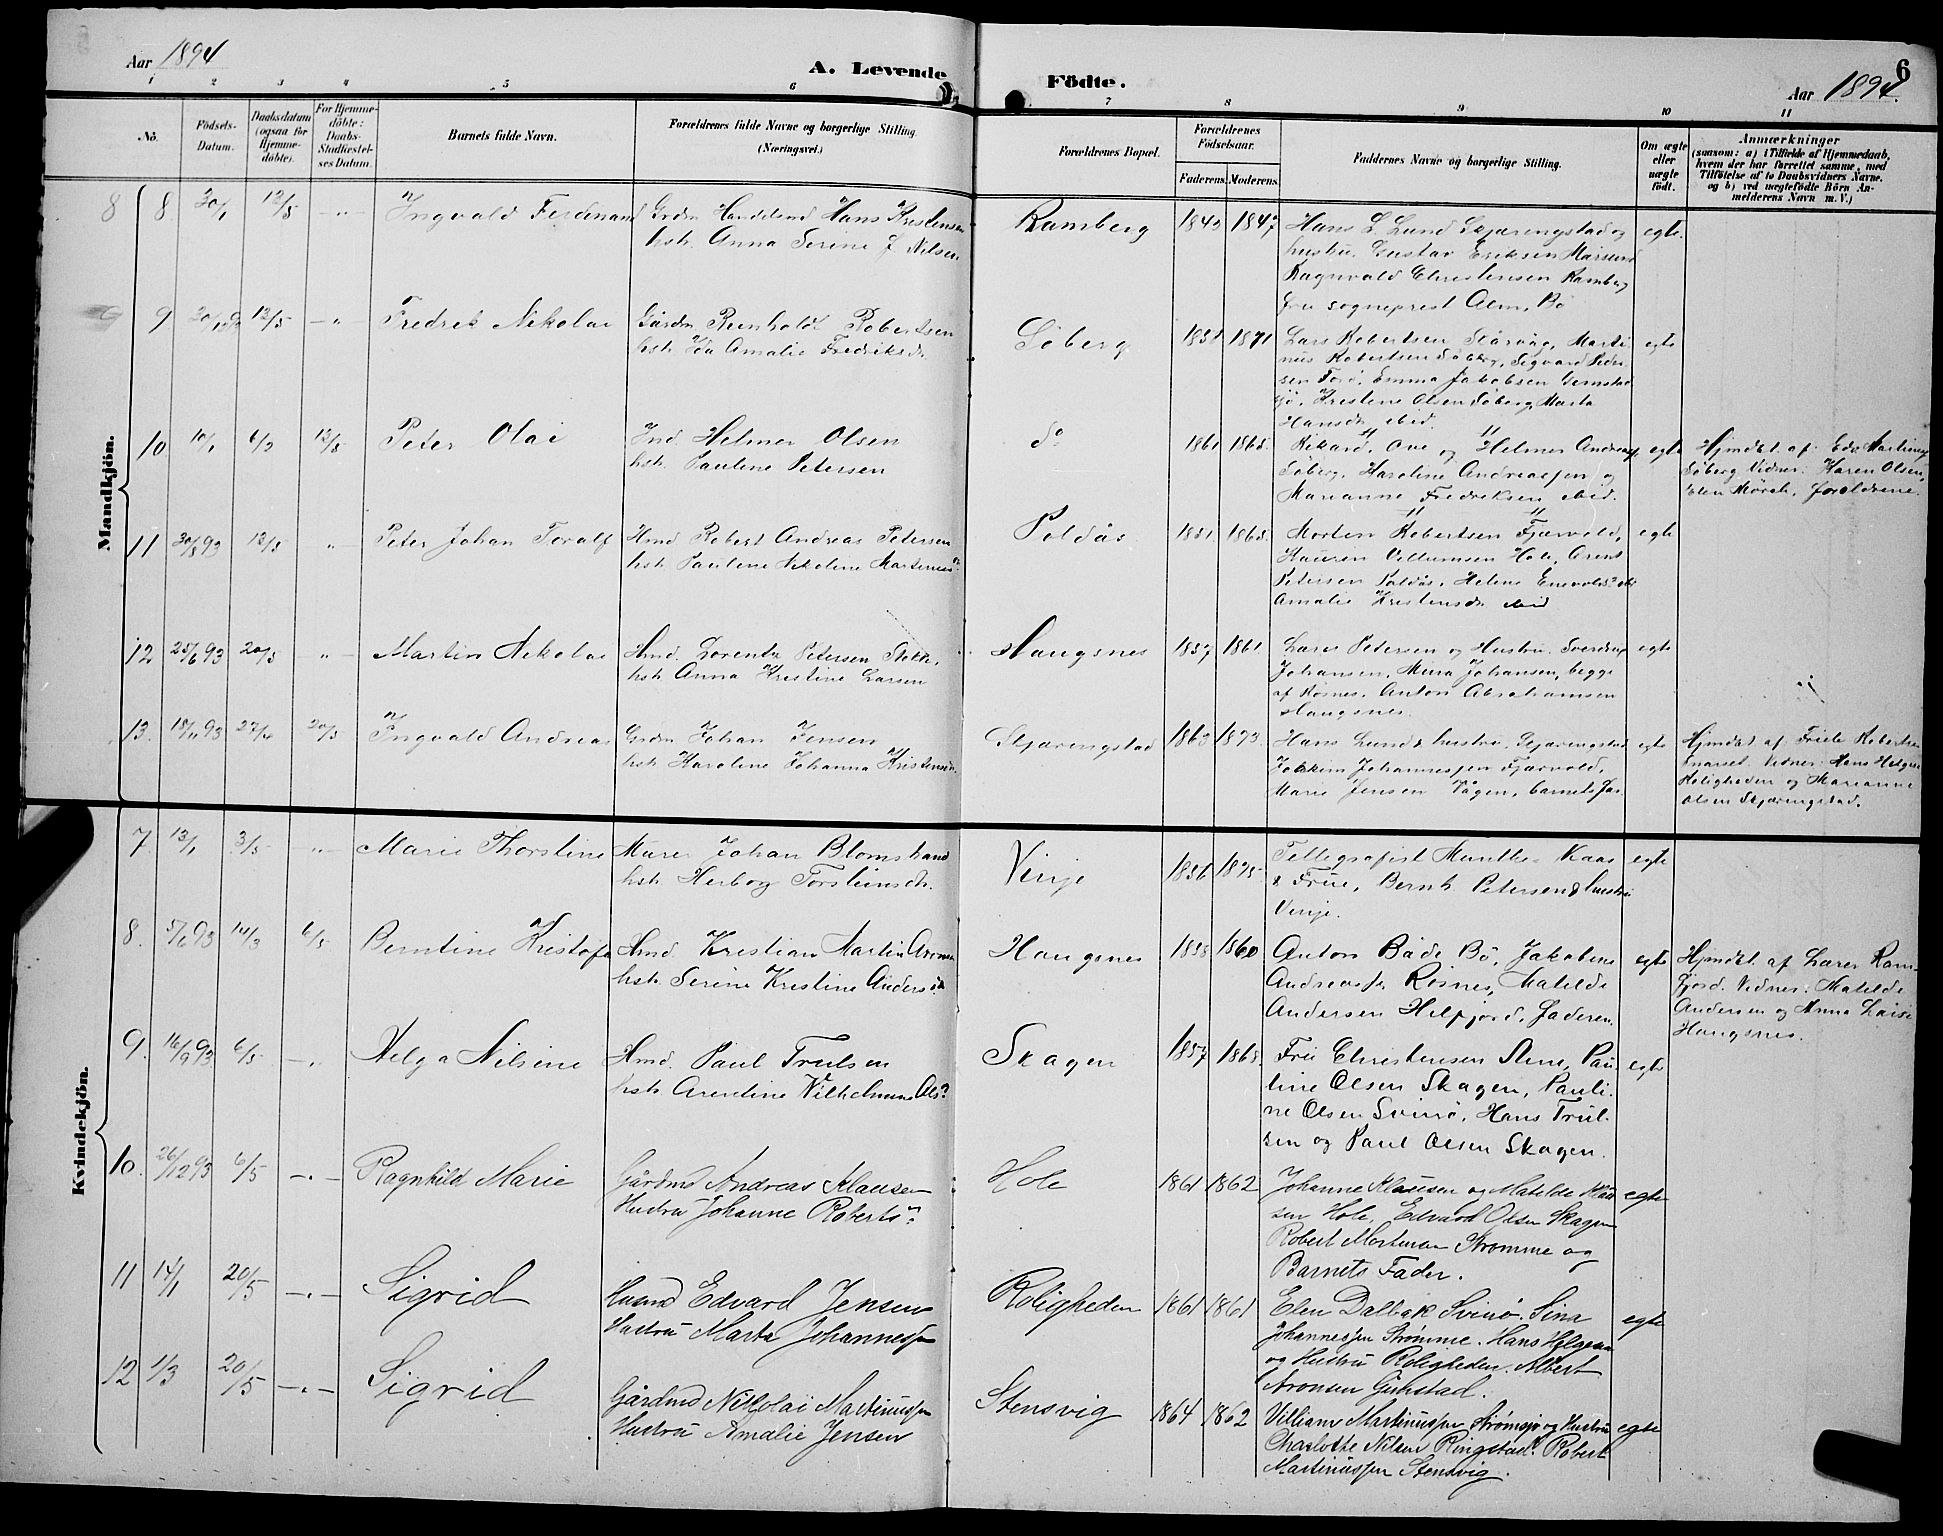 Aar 1894
A. Levende Födte.
Aar 1894.
6
1 2 3 4 5 6 7 8 9 10 11
No.
Födsels-Datum.
Daabsdatum (ogsaa for Hjemme-döbte).
For Hjemme-döbte: Daabs-Stadfæstel-ses Datum.
Barnets fulde Navn.
Forældrenes fulde Navne og borgerlige Stilling.
(Næringsvei.)
Forældrenes Bopæl.
Forældrenes Födselsaar.
Faderens. Moderens.
Faddernes Navne og borgerlige Stilling.
Om ægte eller uægte födt.
Anmærkninger
(saasom: a) i Tilfælde af Hjemmedaab,
hvem der har forrettet samme, med
Tilföielse af to Daabsvidners Navne.
og b) ved uægtefödte Börn An-
melderens Navn m. V.)
Mandkjön.
8 8 30/1 12/5 -"- Ingvald Ferdinand
Grdm Handelsmd Hans Kristensen
hstr. Anna Serine J. Nilsen
Ramberg 1847
Hans L. Lund Skjæringstad og
hustru. Gustav Eriksen
Ragnvald Christensen Ramberg
fru sogneprest Alm, Bö
egte.
9 9 12/5 -"- Fredrik Nikolai
Gårdm Reinholdt Robertsen
hstr. Ida Amalie Fredriksdr.
Söberg 1871
Lars Robertsen Marti-
nus Robertsen Söberg, Sigvard Peder-
sen Emma Jakobsen
Kristine Olsen Söberg, Marta
Hansdr. ibid.
egte
10 10/1 12/5 Peter Olai
Ind. Helmer Olsen
hstr. Pauline Petersen
do 1861
Rikard, Ove og Helmer
Söberg, Haroline Andreassen og
Marianne Fredriksen ibid.
egte
Hjmdbt. af: Edv. Martinus
Söberg Vidner: Karen Olsen,
Elen forældrene.
11 12/5 " Peter Johan Toralf
Hmd Robert Andreas Petersen
hstr. Pauline Nikoline
Poldås 1851
Morten Robertsen Fjærvold,
Villumsen Hole, Arent
Petersen Poldås, Helene
Amalie Kristensdr ibid
egte
12 25/6 93 20/5 " Martin Nikolai
Hmd. Lorentz Petersen
hstr. Anna Kristine Larsen
Haugsnes 1857 1861
Lars Petersen og Hustru. Sverdrup
Johansen, Johansen, begge
af Rösnes. Anton Abrahamsen
Haugsnes.
egte
13. 20/5 Ingvald Andreas
Grdm Johan Jensen
hstr. Karoline Johanna Kristensen.
Skjæringstad 1863 1873.
Hans Lund & hustru. Skjæringstad
Joakim Johannessen Fjærvold,
Marie Jensen Vågen, barnets Far.
egte
Hjmdbt. af: Robertsen
Vidner: Hans Helgesen
Roligheden og Marianne
Olsen Skjæringstad.
Kvindekjön.
7 13/1 3/5 -"- Marie Thorstine
Murer Johan Blomstrand
hstr. Herborg Torsteinsdr.
Vinje 1856
Tellegrafist Munthe Kaas
& Frue, Bernh. Petersen & hustru
Vinje.
egte
8. 5/6 93 14/3 6/5 Berntine Kristofa
Hmd. Kristian Martin
hstr. Serine Kristine Anders.
Haugsnes 1858 1860
Anton Både Bö, Jakobine
Rösnes, Matilde
Andersen Helfjord, Faderen.
egte
Hjmdbt. af Lærer Ram-
fjord. Vidner: Matilde
Andersen og Anna
Haugsnes.
9. 16/9 93 6/5 -"- Helga Nilsine
Hmd. Paul Trulsen
hstr. Arentine Vilhelmine Ols?
Skagen 1857 1868
Fru Christensen Stene, Pau-
line Olsen Skagen, Pauli-
ne Olsen Svinö, Hans Trul-
sen og Paul Olsen Skagen.
egte
10. 26/12 93 6/5 -"- Ragnhild Marie
Gårdmd Andreas Klausen
Hustru Johanne Roberts
Hole 1861 1862
Johanne Klausen og Matilde Klau-
sen Hole, Edvard Olsen Skagen
Robert Mortensen Strømme og
Barnets Fader.
egte
11 14/1 20/5 -"- Sigrid
Husmd Edvard Jensen
Hustru Marta Johannessen
Roligheden 1861 1861
Elen Dalbak Svinö. Sina
Johannessen Strømme. Hans Helgesen
og Hustru Roligheden. Albert
Aronsen
egte
12 1/3 20/5 -"- Sigrid
Gårdmd Nikolai Martinussen
Hustru Amalie Jensen
Stensvig 1864 1862
Villiam Martinussen og Hustru
Charlotte Nilsen Ringstad. Robert
Martinussen Stensvig.
egte